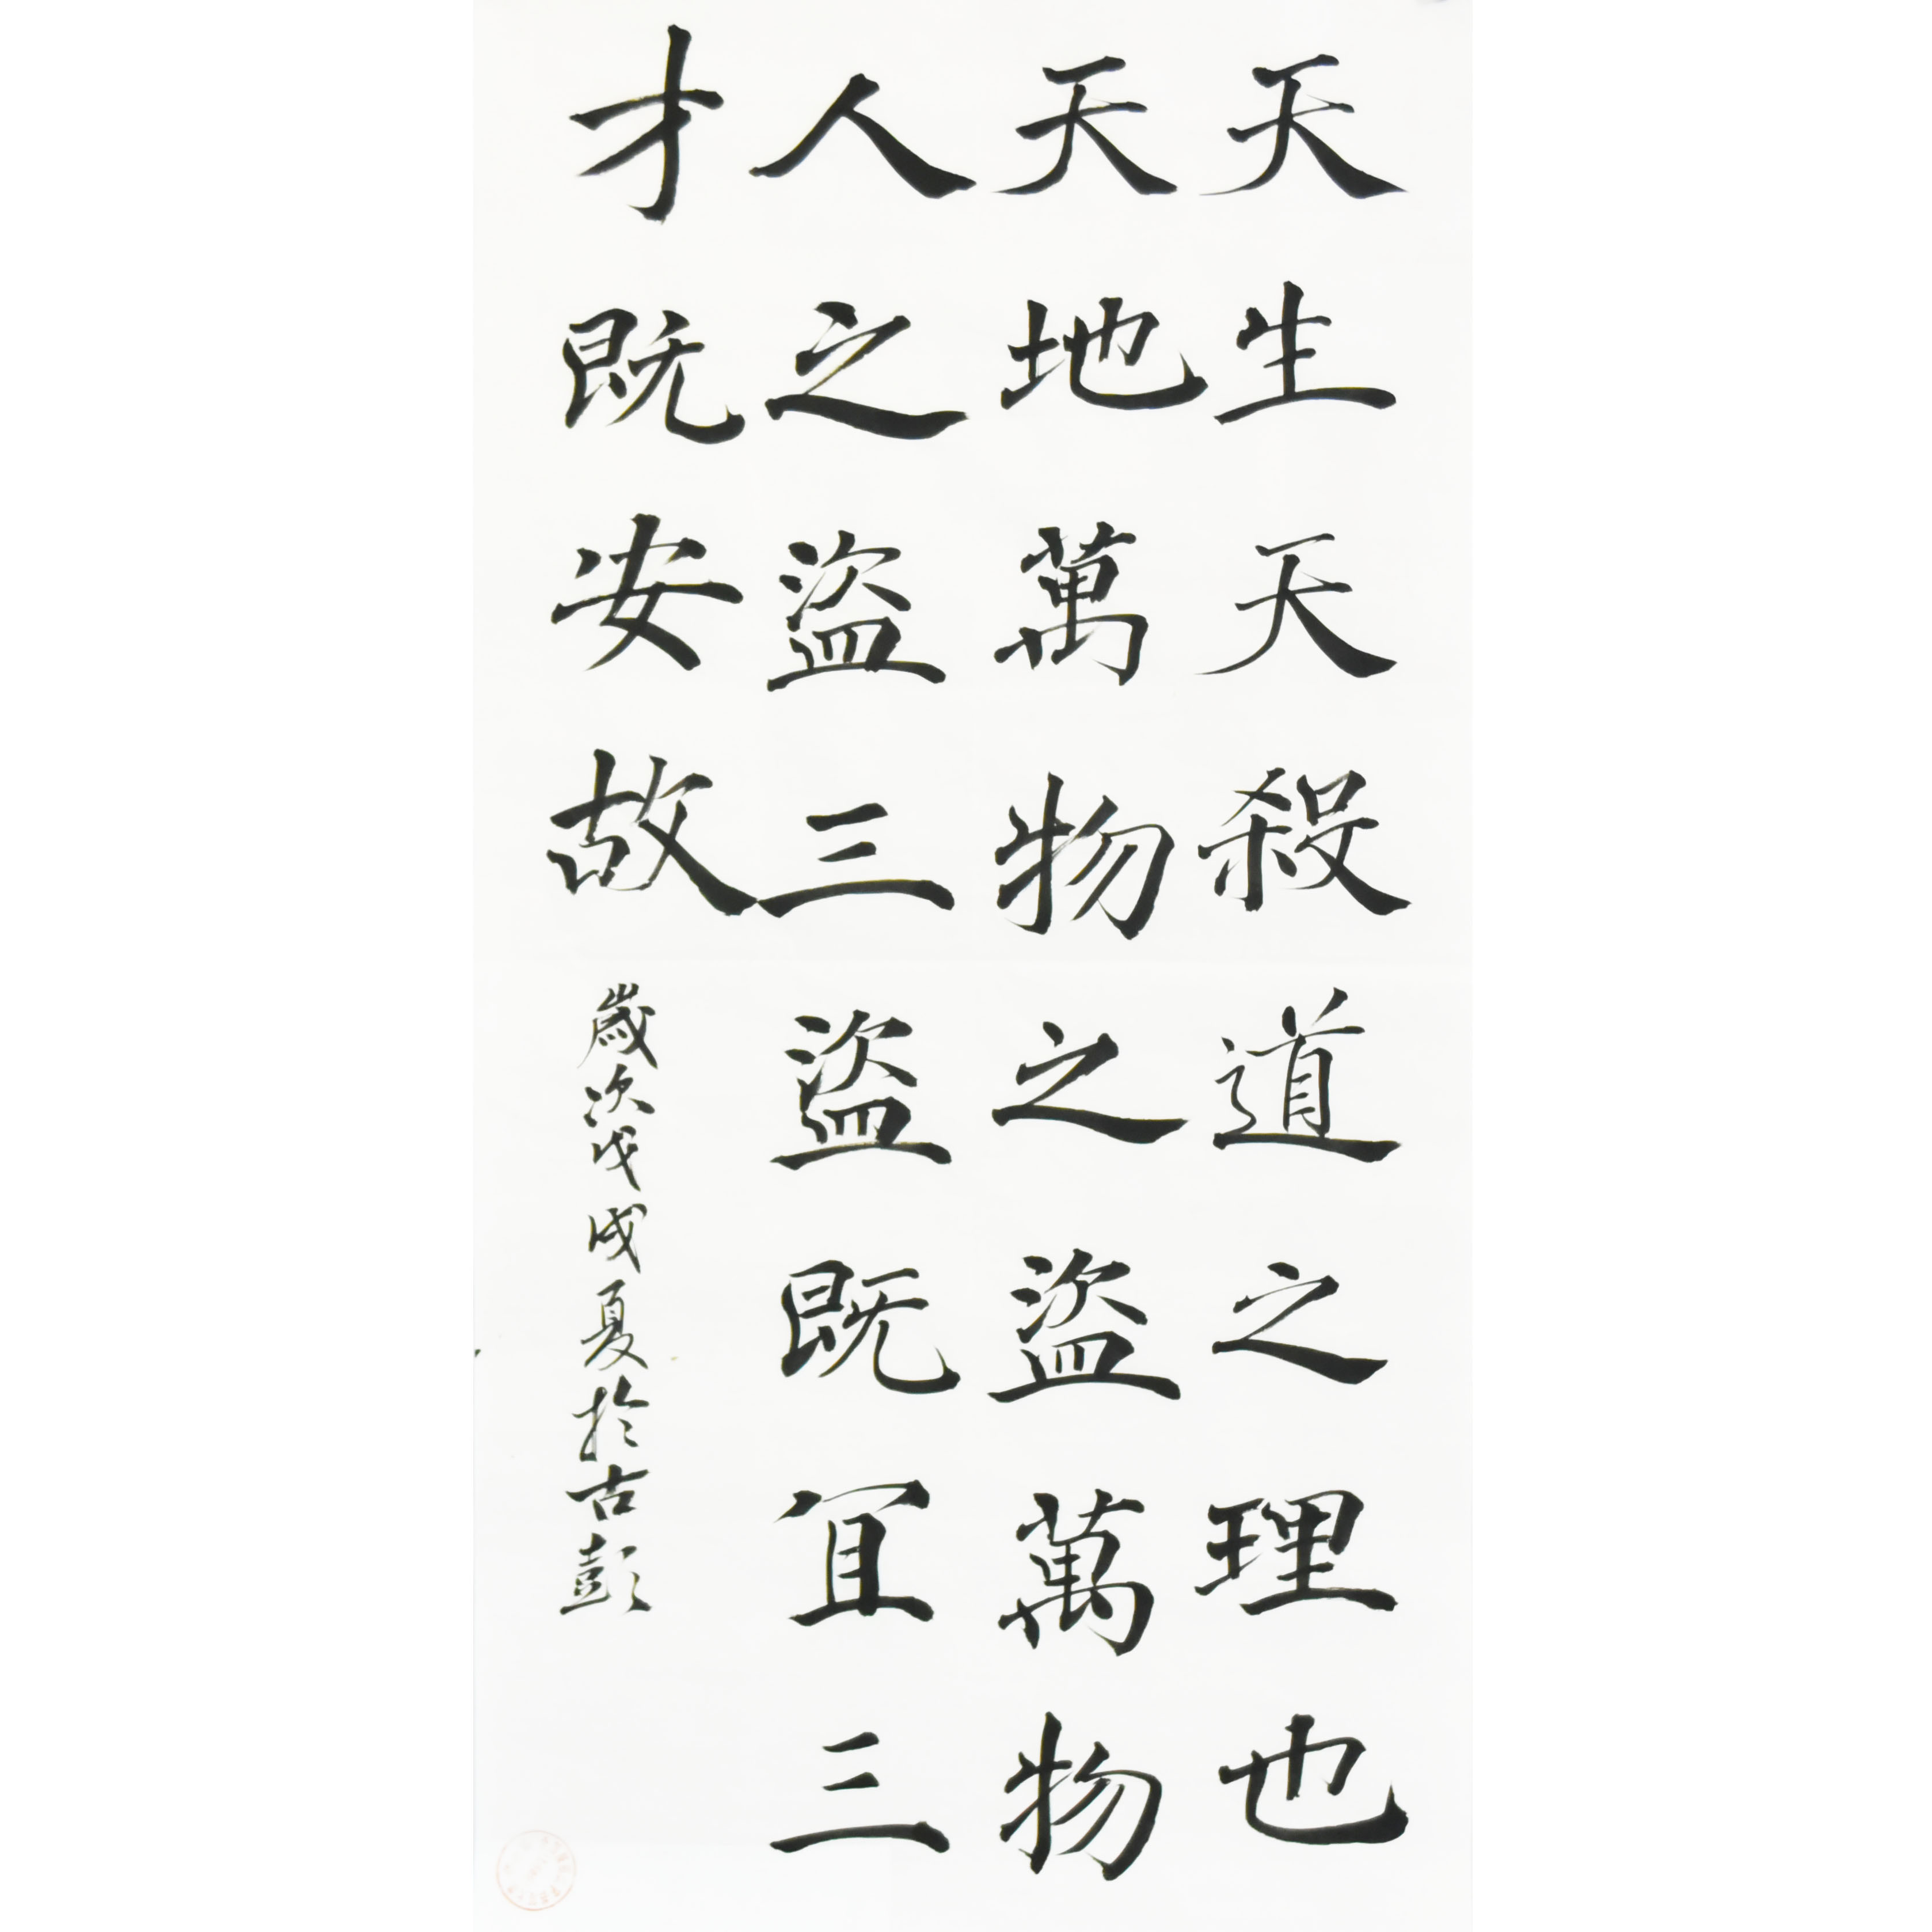 天生天殺道之理也
天地萬物之盜萬物
人之盜三盜既宜三
才既安故
歲次戊戌夏於古彭